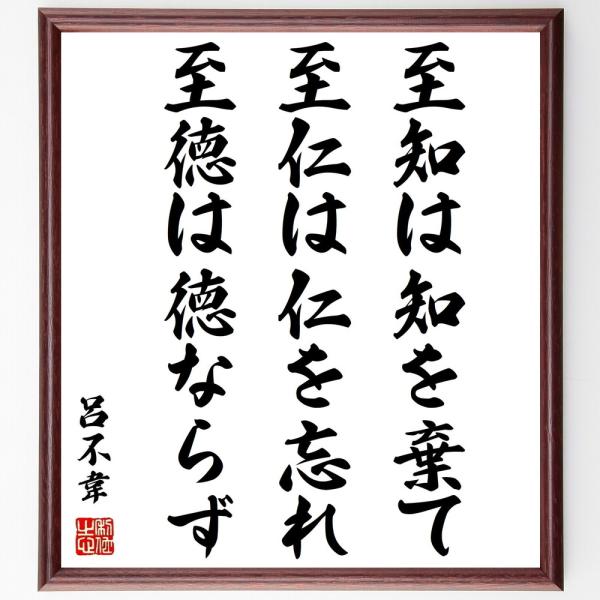 至知は知を棄て
至仁は仁を忘れ
至徳は徳ならず
呂不韋